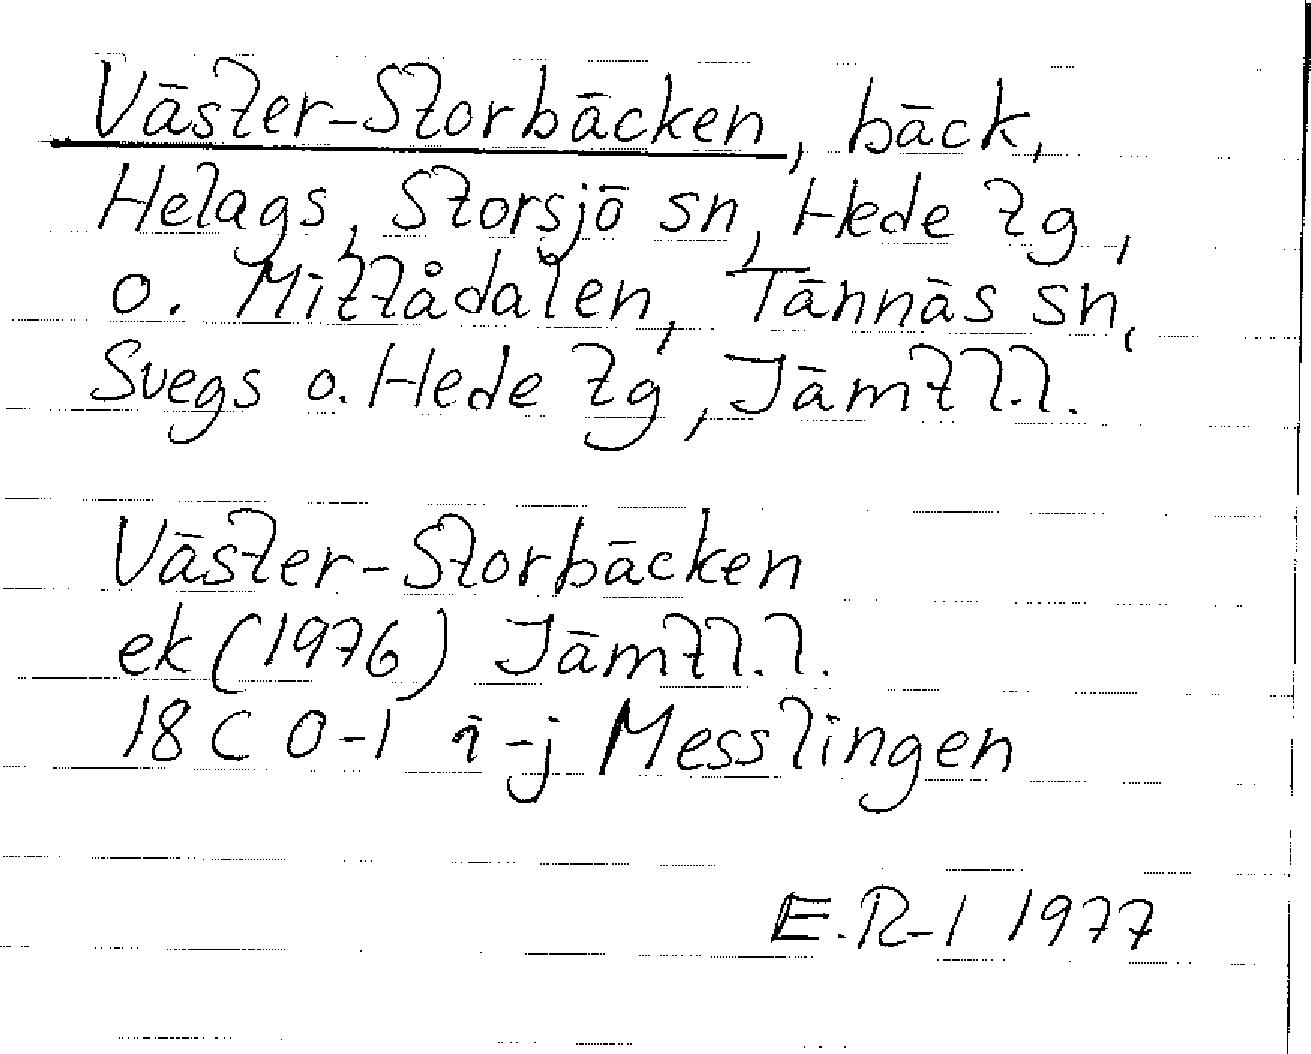 Väster-Storbäcken, bäck,
Helags, Storsjö sn, Hede tg,
o. Mittådalen, Tännäs sn,
Svegs o. Hede tg, Jämtl.l.
Väster-Storbäcken
ek (1976) Jämtl.l.
18 C 0-1 i-j Messlingen
E.R-l 1977